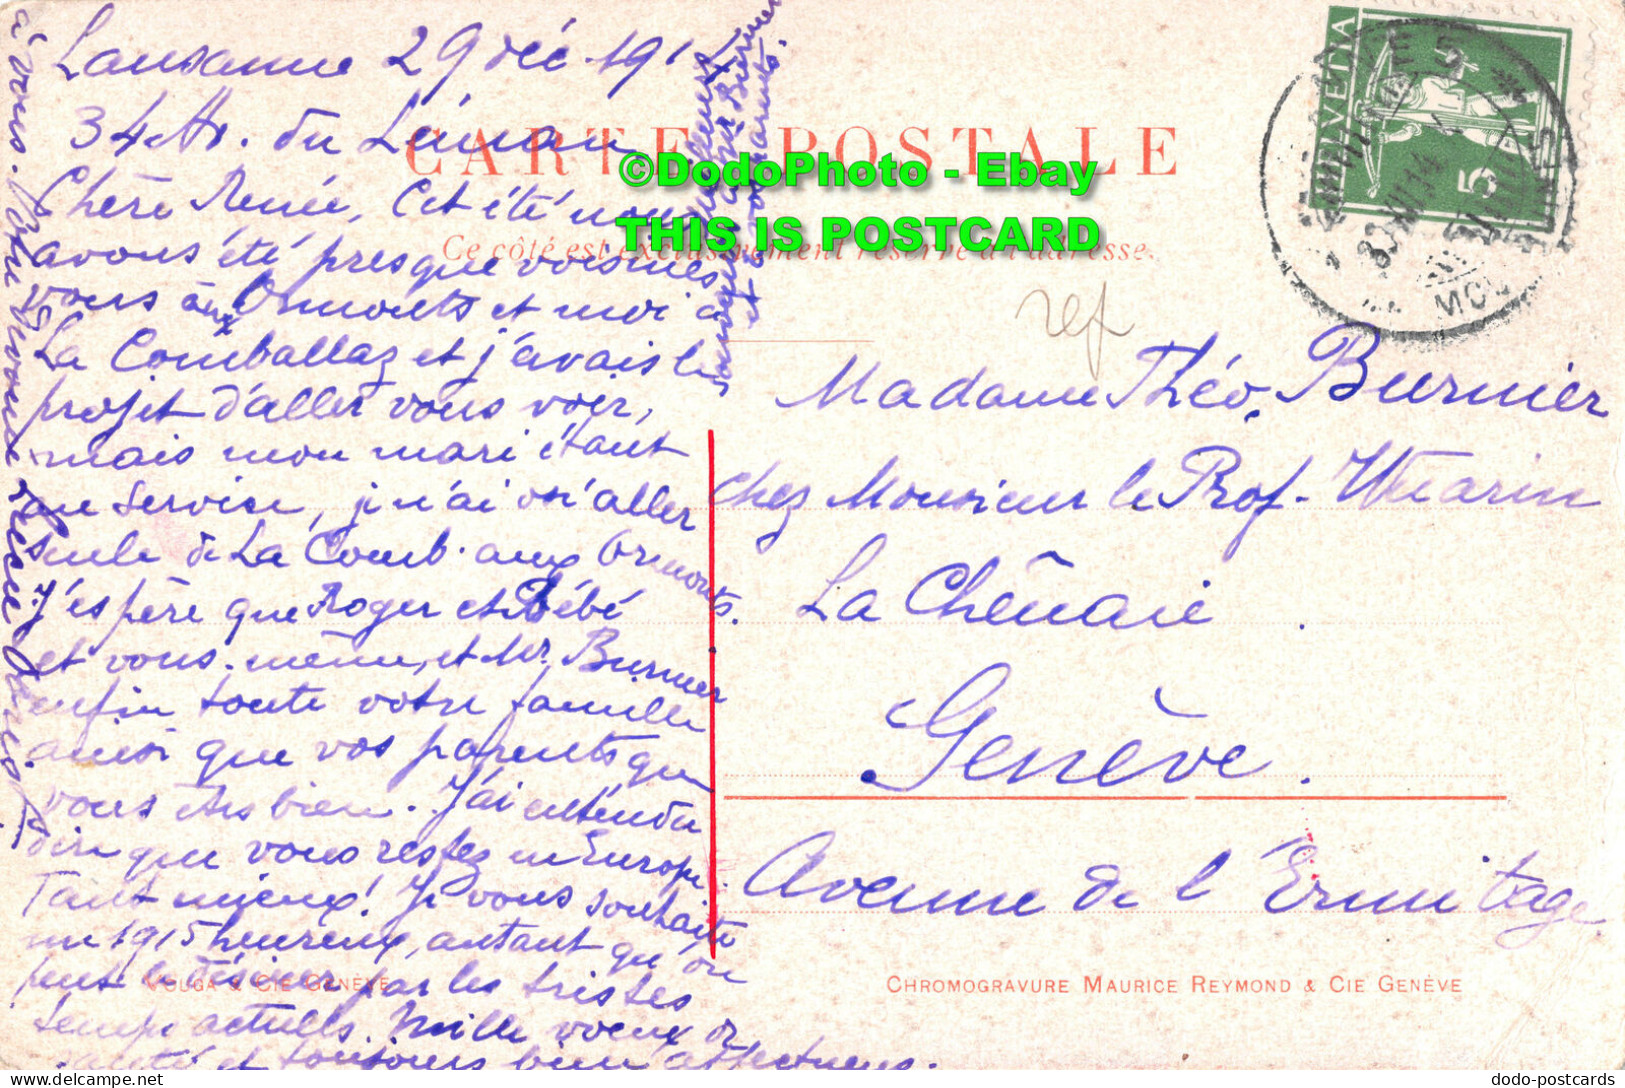 Lausanne 29 déc 1914
34 Av. du Léman
CARTE POSTALE
©DodoPhoto - Ebay
THIS IS POSTCARD
Ce côté est exclusivement réservé à l'adresse.
HELVETIA
5
ref
Chère Renée, Cet été nous
avons été presque voisines
vous aux Ormonts et moi à
La Comballaz et j'avais le
projet d'aller vous voir,
mais mon mari étant
au service, je n'ai osé aller
seule de La Comb. aux Ormonts.
J'espère que Roger et Bébé
et vous-même, et Mr. Burnier
enfin toute votre famille
ainsi que vos parents que
vous êtes bien. J'ai entendu
dire que vous restez en Europe.
Tant mieux! Je vous souhaite
un 1915 heureux, autant qu'on
peut le désirer par les tristes
temps actuels. Mille voeux de
santé et toujours bien affectueus.
à vous.
Mr Burnier
et à vos parents.
Madame Théo. Burnier
chez Monsieur le Prof. Wuarin
La Chênaie
Genève.
Avenue de l'Ermitage
VOUGA & CIE GENÈVE
CHROMOGRAVURE MAURICE REYMOND & CIE GENÈVE
dodo-postcards